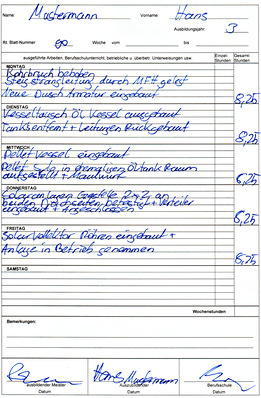 Name: Mustermann Vorname: Hans
Ausbildungsjahr: 3
Rt. Blatt-Nummer 90 Woche vom bis
ausgeführte Arbeiten, Berufsschulunterricht, betriebliche u. überbetr. Unterweisungen usw. Einzel-Stunden Gesamt-Stunden
MONTAG
Rohrbruch behoben
Steigstrangleitung durch MFH gelegt
Neue Dusch Armatur eingebaut 8,25
DIENSTAG
Kesseltausch Öl Kessel ausgebaut
Tanks entfernt + Leitungen Rückgebaut 8,25
MITTWOCH
Pellet Kessel eingebaut
Pellet Silo in ehemaligen Öltank Raum
aufgestellt + Maulwurf 6,25
DONNERSTAG
Solaranlagen Gestelle 2x2 an
beiden Dachseiten befestigt + Verteiler
eingebaut + Angeschlossen 6,25
FREITAG
Solar Kollektor Röhren eingebaut +
Anlage in Betrieb genommen 8,25
SAMSTAG
Wochenstunden:
Bemerkungen:
Hans Mustermann
ausbildender Meister Auszubildender Berufsschule
Datum Datum Datum